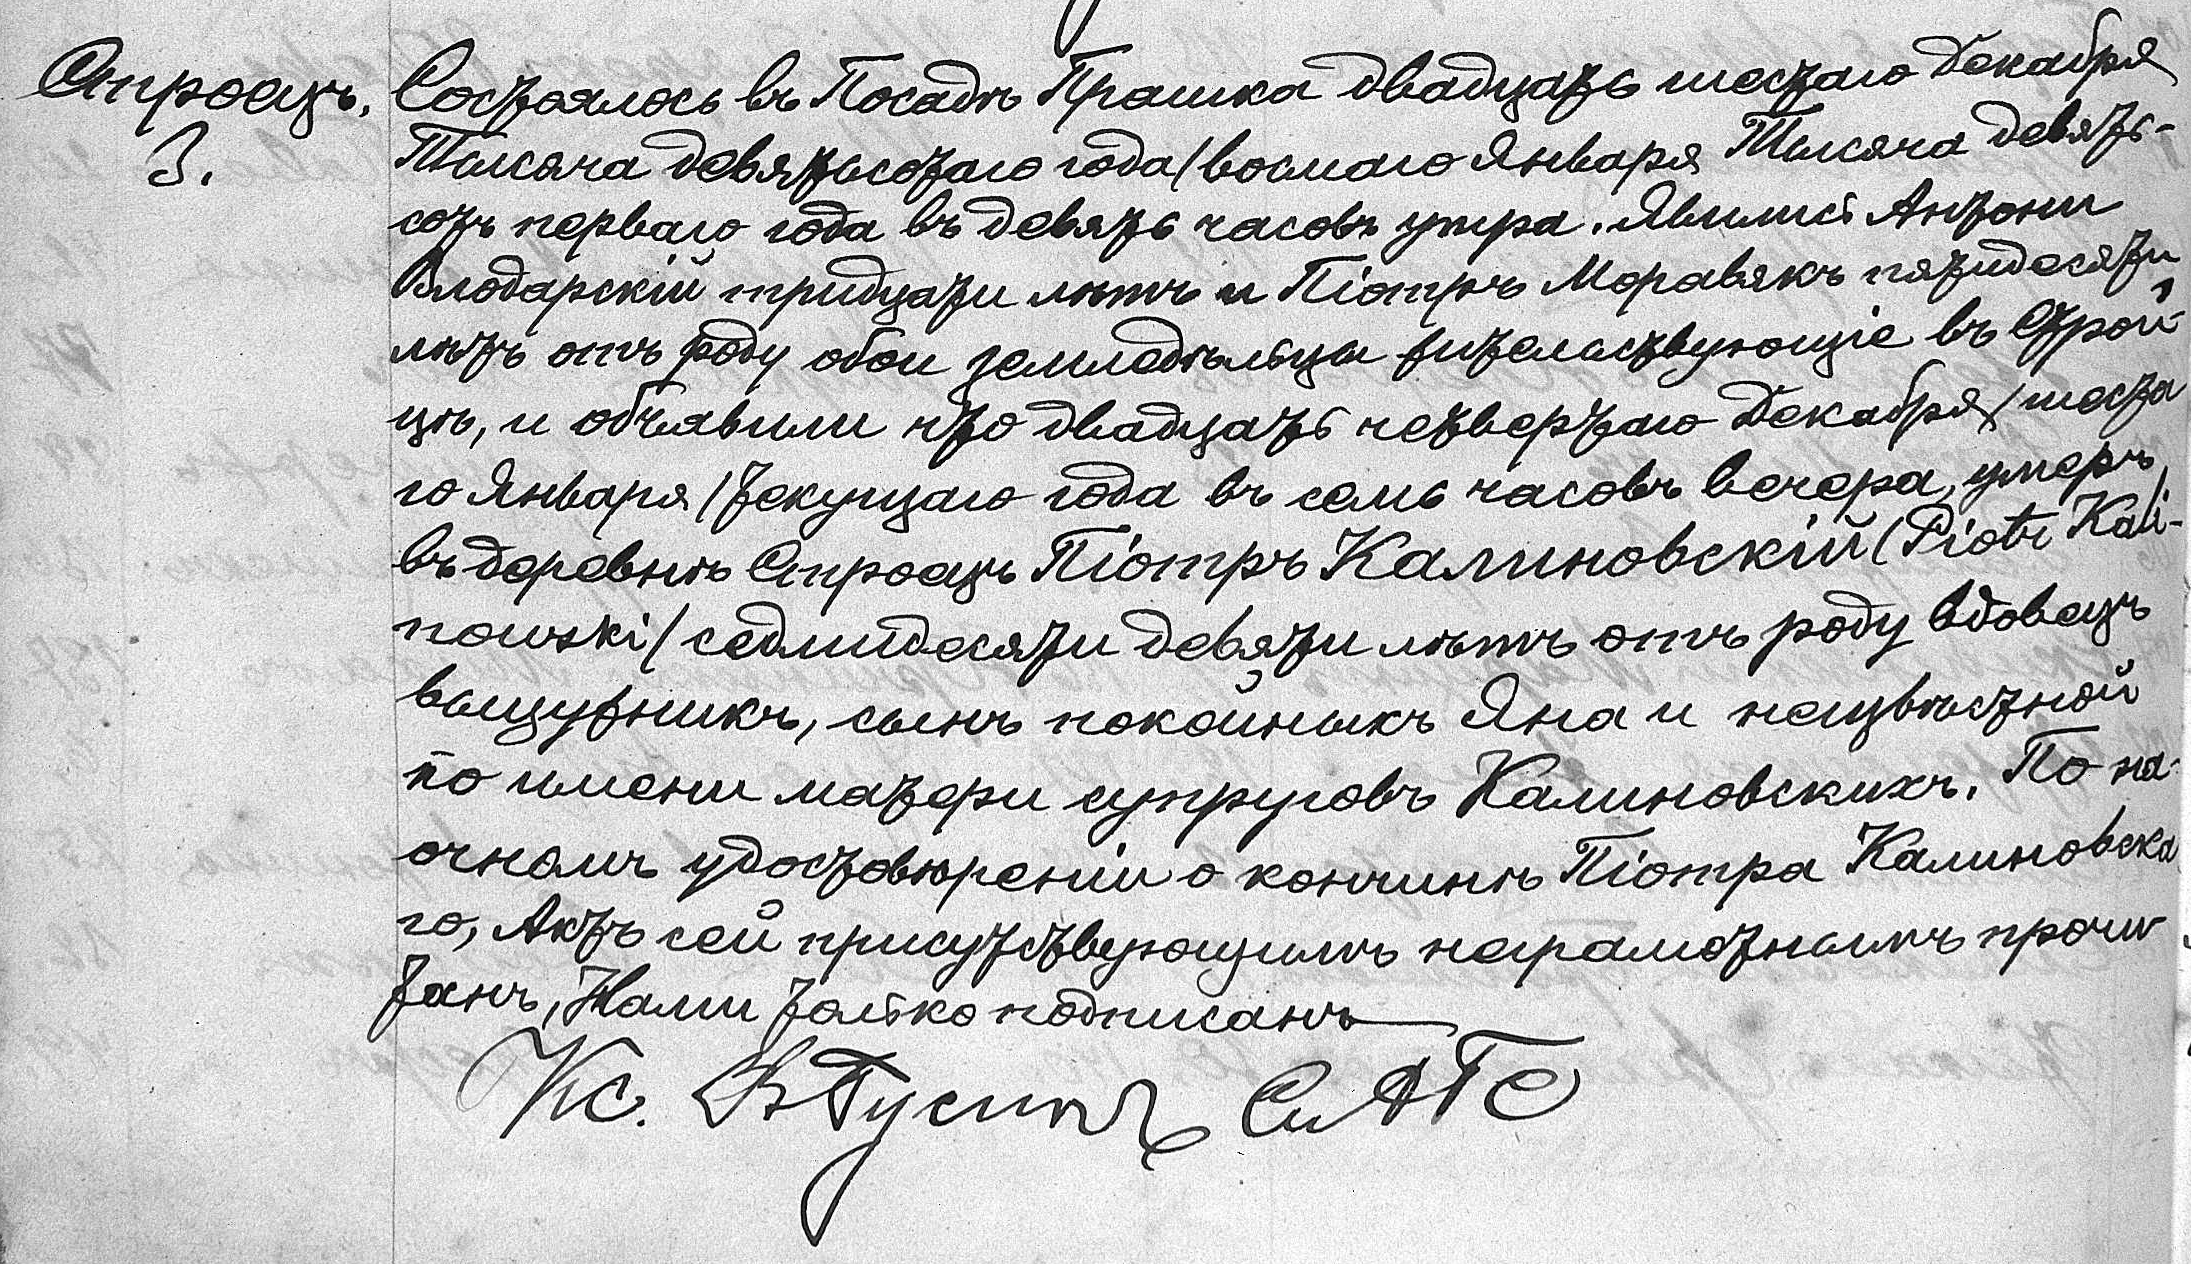 Строецъ.
3.
Состоялось въ Посадѣ Прашка двадцать шестаго Декабря
Тысяча девятьсотаго года /восмаго Января Тысяча девять-
сотъ перваго года въ девять часовъ утра. Явились Антони
Влодарскій тридцати лѣтъ и Піотръ Моравякъ пятидесяти
лѣтъ отъ роду обои земледѣльцы жительствующіе въ Строй-
цѣ, и объявили что двадцать четвертаго Декабря /шеста
го Января /текущаго года въ семь часовъ вечера, умеръ
въ деревнѣ Строецъ Піотръ Калиновскій (Piotr Kali-
nowski/ седмидесяти девяти лѣтъ отъ роду вдовецъ
выцужникъ, сынъ покойныхъ Яна и неизвѣстной
по имени матери супруговъ Калиновскихъ. По на-
очномъ удостовѣреніи о кончинѣ Піотра Калиновска
го, Актъ сей присутствующимъ неграмотнымъ прочи-
танъ, Нами только подписанъ
Кс.